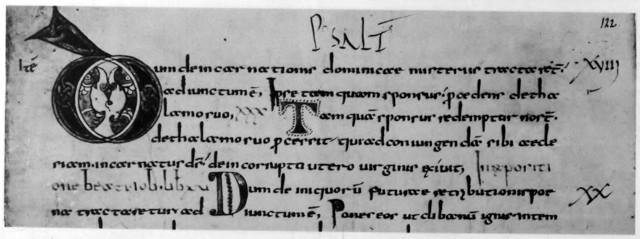 PSALT̄ 122
Itē Dum de incarnationis dominicae misteriis tractaret: XVIII
adiunctum ē, Ipse tamquam sponsus procedens de tha
lamo suo, XXX Tamquā sponsus redemptor nost
de thalamo suo processit qui ad coniungendā sibi aecle
siam incarnatus d̄s de incorrupta utero virginis exivit, In expositi
one beati iob lib Dum de iniquorū futurae retributionis poe XX
na tractaretur adiunctum ē, Pones eos ut clibanū ignis intem